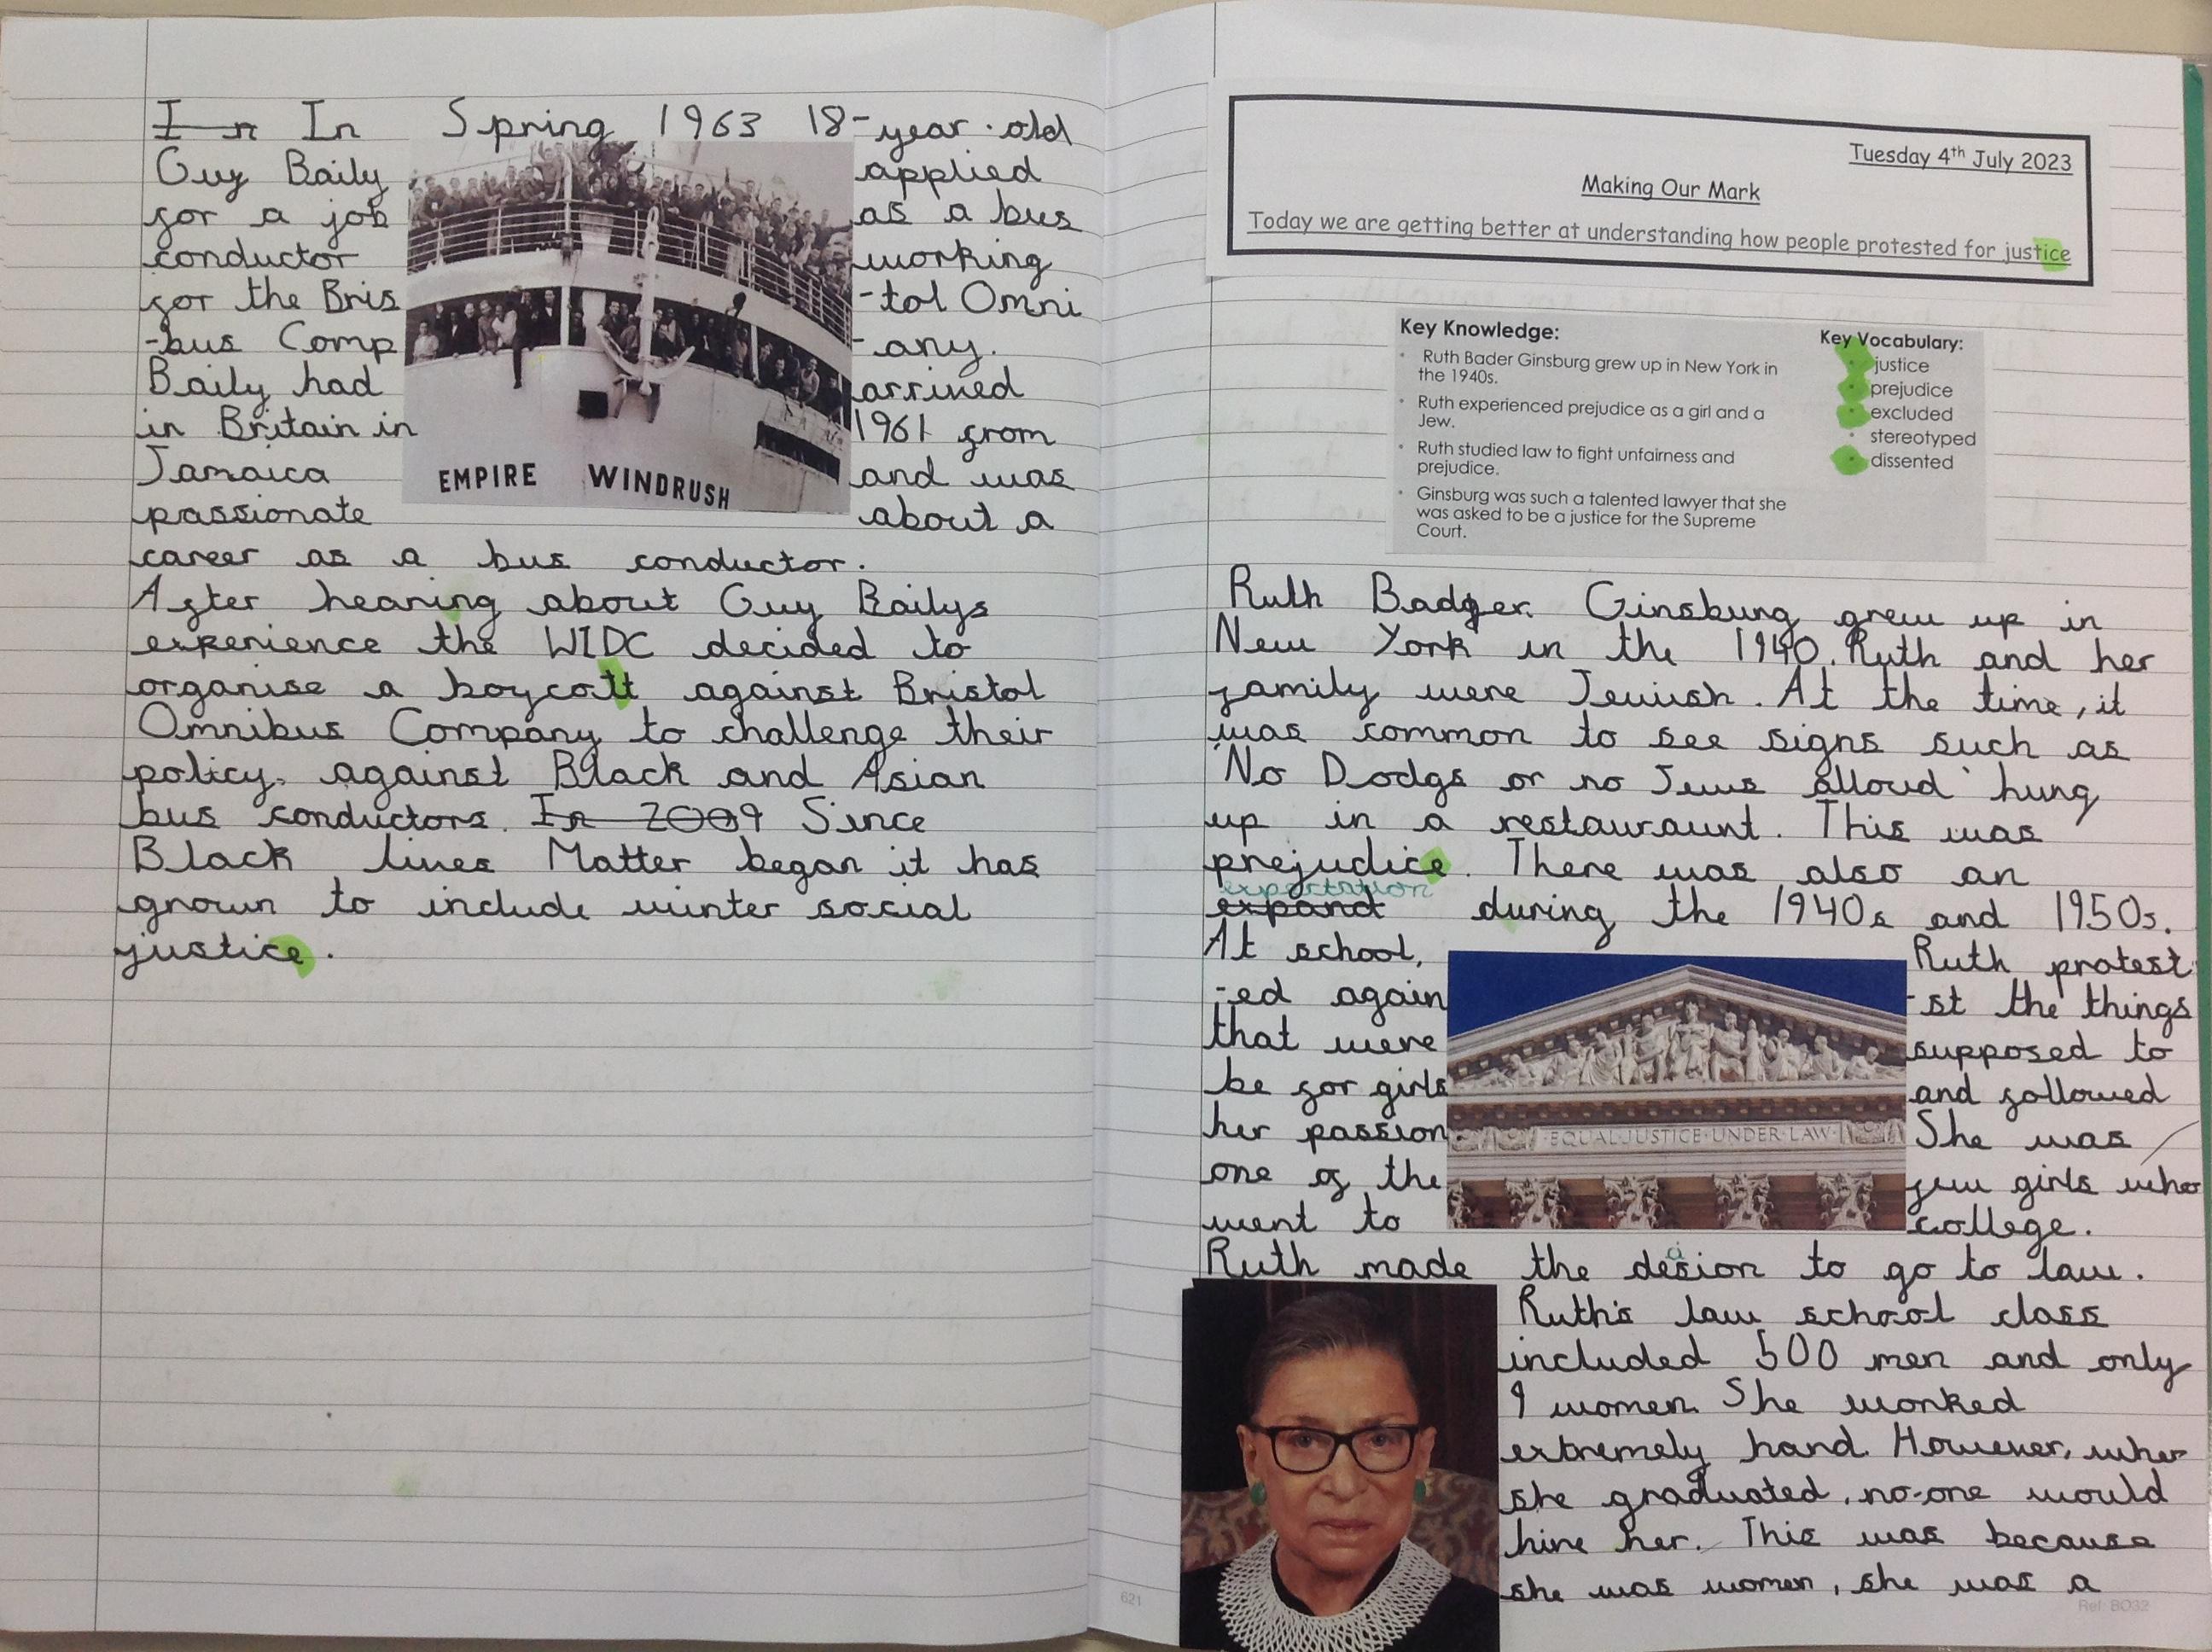 I n In Spring 1963 18-year-old
Guy Baily applied
for a job as a bus
conductor working
for the Bris -tol Omni
-bus Comp -any.
Baily had arrived
in Britain in 1961 from
Jamaica and was
passionate about a
career as a bus conductor.
After hearing about Guy Bailys
experience the WIDC decided to
organise a boycott against Bristol
Omnibus Company to challenge their
policy. against Black and Asian
bus conductors. In 2009 Since
Black lives Matter began it has
grown to include winter social
justice.
EMPIRE WINDRUSH
Tuesday 4th July 2023
Making Our Mark
Today we are getting better at understanding how people protested for justice
Key Knowledge:
• Ruth Bader Ginsburg grew up in New York in
the 1940s.
• Ruth experienced prejudice as a girl and a
Jew.
• Ruth studied law to fight unfairness and
prejudice.
• Ginsburg was such a talented lawyer that she
was asked to be a justice for the Supreme
Court.
Key Vocabulary:
• justice
• prejudice
• excluded
• stereotyped
• dissented
Ruth Badger Ginsburg grew up in
New York in the 1940. Ruth and her
family were Jewish. At the time, it
was common to see signs such as
'No Dodgs or no Jews alloud' hung
up in a restauraunt. This was
prejudice. There was also an
expectation
expand during the 1940s and 1950s.
At school, Ruth protest
-ed again -st the things
that were supposed to
be for girls and followed
her passion She was
one of the few girls who
went to college.
EQUAL·JUSTICE·UNDER·LAW
Ruth made the desion to go to law.
Ruth's law school class
included 500 men and only
9 women. She worked
extremely hard. However, when
she graduated, no-one would
hire her. This was because
she was women, she was a
621
Ref: BO32